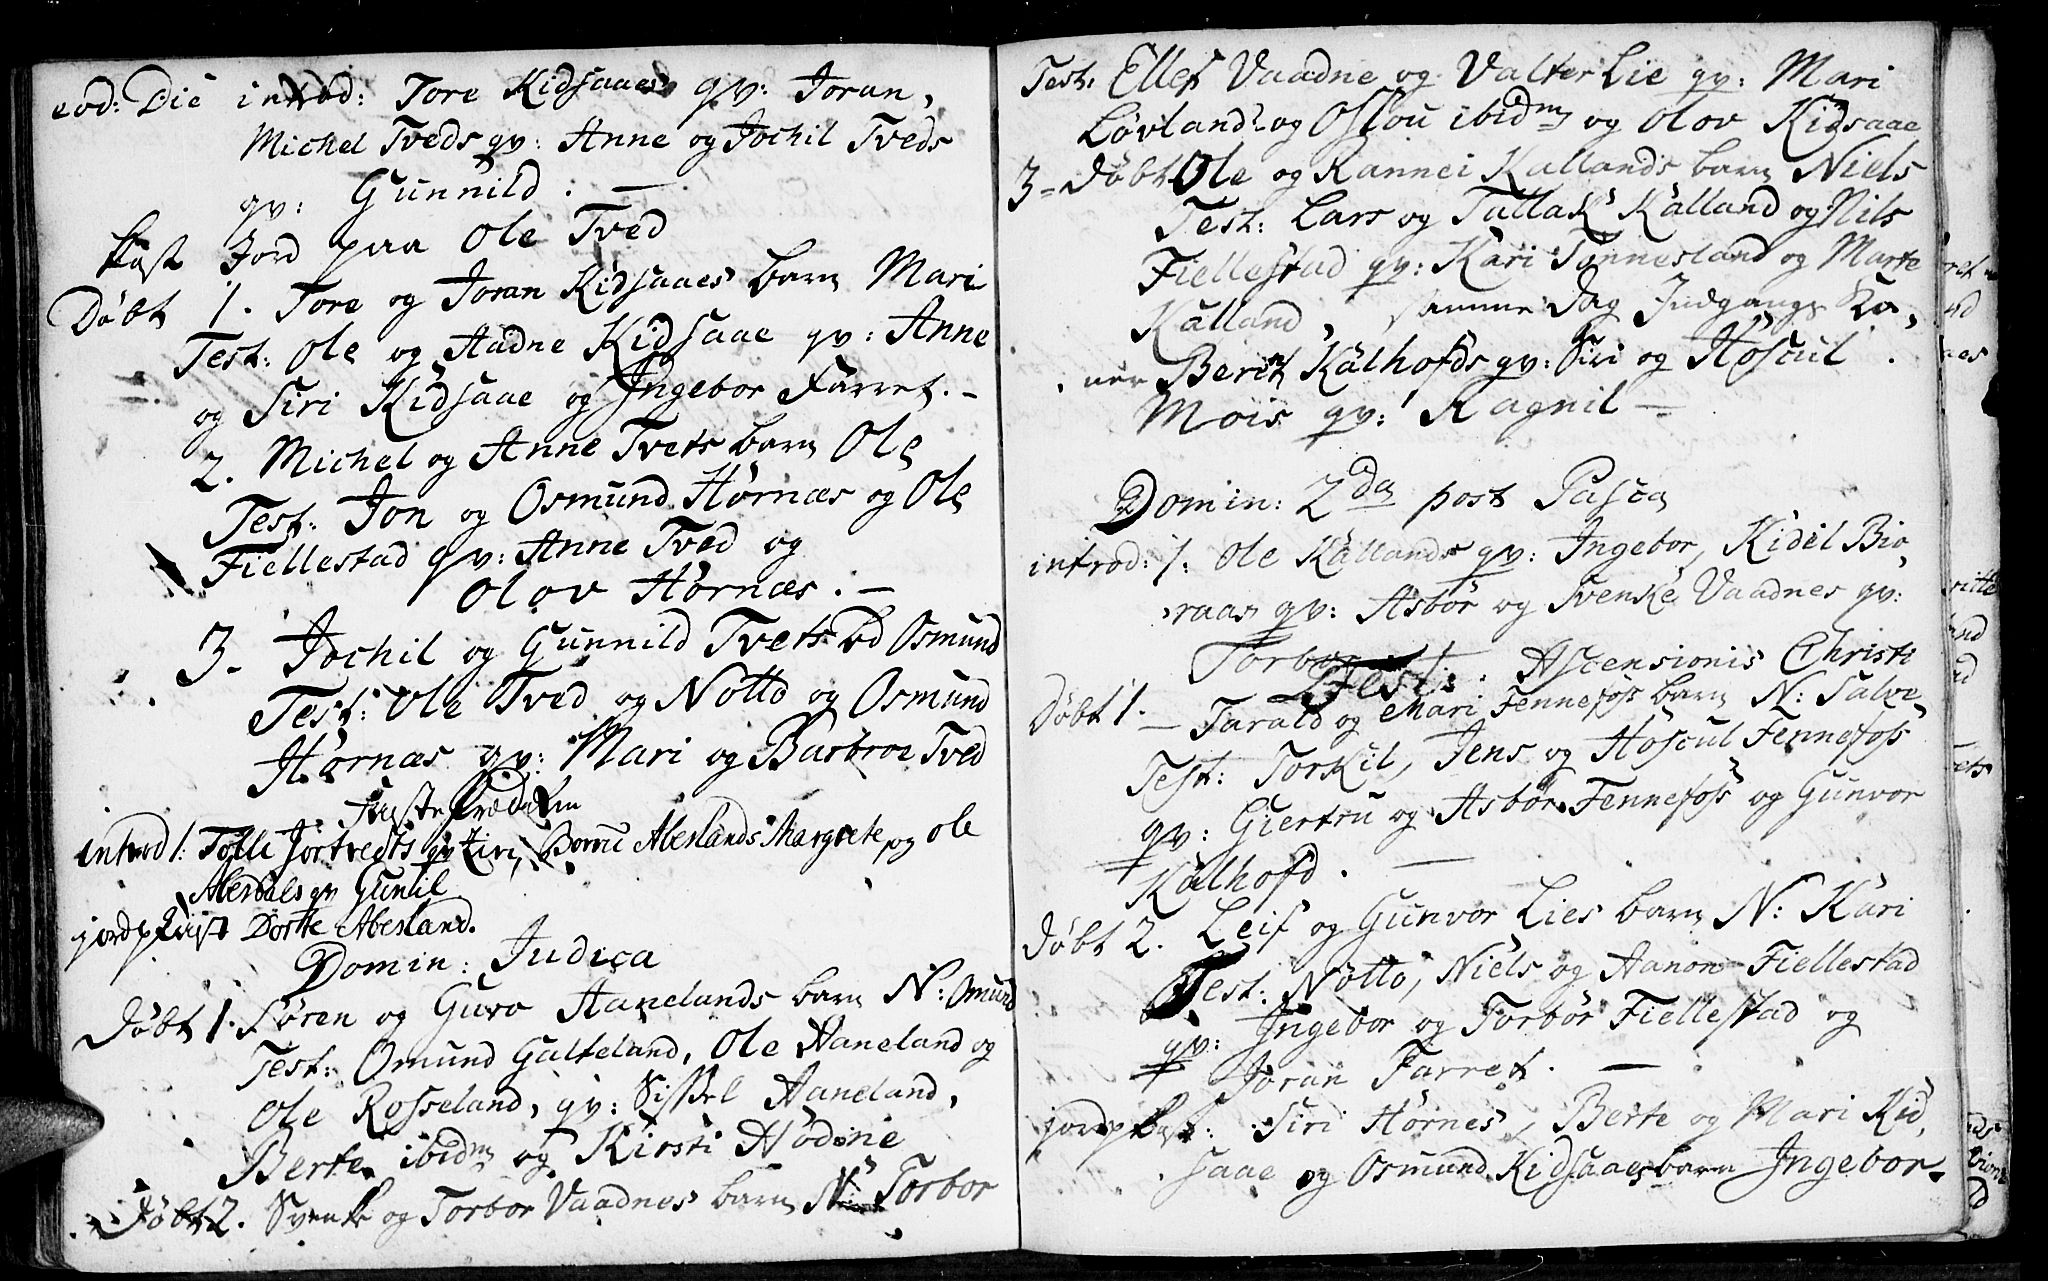 eod: Die introd: Tore Kidsaaes qv: Joran,
Michel Tveds qv: Anne og Jochil Tveds
qv: Gunnild. —
kast Jord paa Ole Tved
Døbt 1. Tore og Joran Kidsaaes barn Mari
Test: Ole og Aadne Kidsaae qv: Anne
og Siri Kidsaae og Ingebor Farret. –
2. Michel og Anne Tvets barn Ole
Test: Jon og Osmund Hørnæs og Ole
Fiellestad qv: Anne Tved og
Olov Hørnæs. –
3- Jochil og Gunnild Tvets Osmund
Test: Ole Tved og Notto og Osmund
Hørnæs qv: Mari og Barbroe Tved
introd 1: qv Aberlands Margrete og Ole
qv Gunil
jordpkast Dorte Aberland.
Domin: Judica
Døbt 1. Søren og Guro Hanelands barn N: Omund
Test: Omund Galteland, Ole Haneland og
Ole Rosseland, qv: Sissel Haneland,
Berte ibidm og Kirsti Hødne
Døbt 2. Svenke og Torbor Vaadnes barn N: Torbor
Test: Ellef Vaadne og Valter Lie qv: Mari
Løvland og Oslou ibidm og Olov Kidsaae
3- Døbt Ole og Rannei Kallands barn Niels
Test: Lars og Tallak Kalland og Nils
Fiellestad qv: Kari Tønnesland og Marte
Kalland, samme Dag Indgangs Ko,
ner Berit Kalhofds qv: Siri og Høscul
Mois qv: Ragnil –
Domin: 2da post Pasca
introd: 1: Ole Kallands qv: Ingebor, Kidel Bio,
raas qv: Asbør og Svenke Vaadnes qv:
Torbor Fest: Ascensionis Christi
Døbt 1. – Tarald og Mari Fennefos barn N: Salve
Test: Torkil, Jens og Høscul Fennefos
qv: Giertru og Asbør Fennefos og Gunvor
Kalhofd. —
Døbt 2. Leif og Gunvor Lies barn N: Kari
Test: Notto, Niels og Aanon Fiellestad
qv: Ingebor og Torbør Fiellestad og
Joran Farret. —
jordpkast: Siri Hørnes, Berte og Mari Kid,
saae og Osmund Kidsaaes barn Ingebor